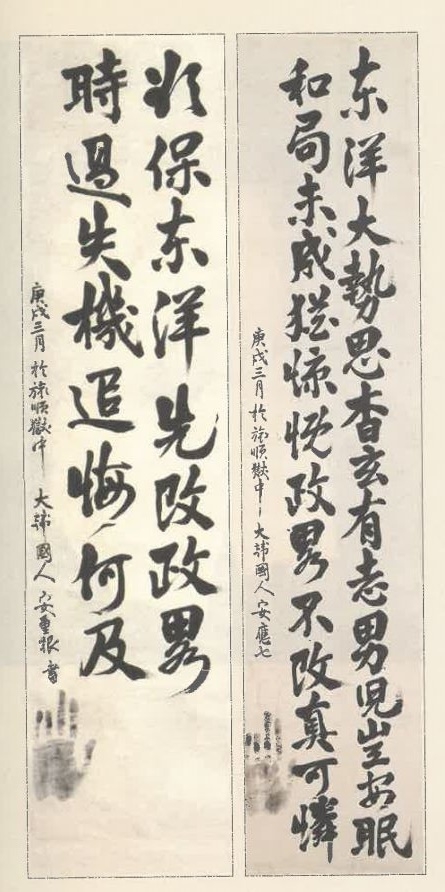 東洋大勢思杳玄有志男児豈安眠
和局未成猶慷慨政畧不改真可憐
庚戌三月於旅順獄中 大韓國人安應七
欲保東洋先改政畧
時過失機追悔何及
庚戌三月於旅順獄中 大韓國人安重根書